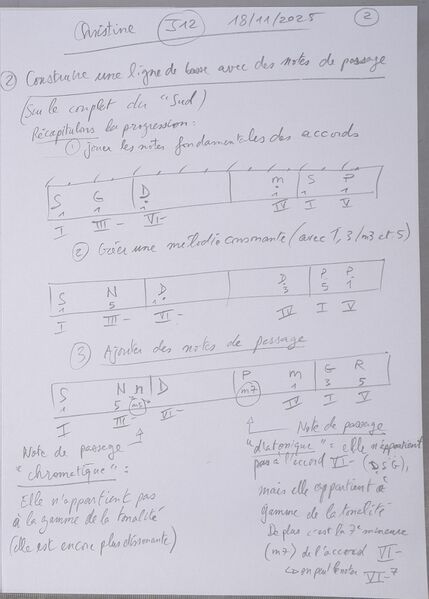 Christine J12 18/11/2025 2
2 Construire une ligne de basse avec des notes de passage
(Sur le couplet du "Sud")
Récapitulons la progression:
1 jouer les notes fondamentales des accords
S G D m S P
1 1 1 1 1 1
I III- VI- IV I V
2 Créer une mélodie consonante (avec 1, 3/m3 et 5)
S N D D P P
1 5 1 3 5 1
I III- VI- IV I V
3 Ajouter des notes de passage
S N n D P m G R
1 5 1 m7 1 3 5
I III- VI- IV I V
Note de passage
"chromatique":
Elle n'appartient pas
à la gamme de la tonalité
(elle est encore plus dissonante)
Note de passage
"diatonique": elle n'appartient
pas à l'accord VI- (DSG),
mais elle appartient à
gamme de la tonalité
De plus c'est la 7e mineure
(m7) de l'accord VI-
↳ on peut le noter VI-7